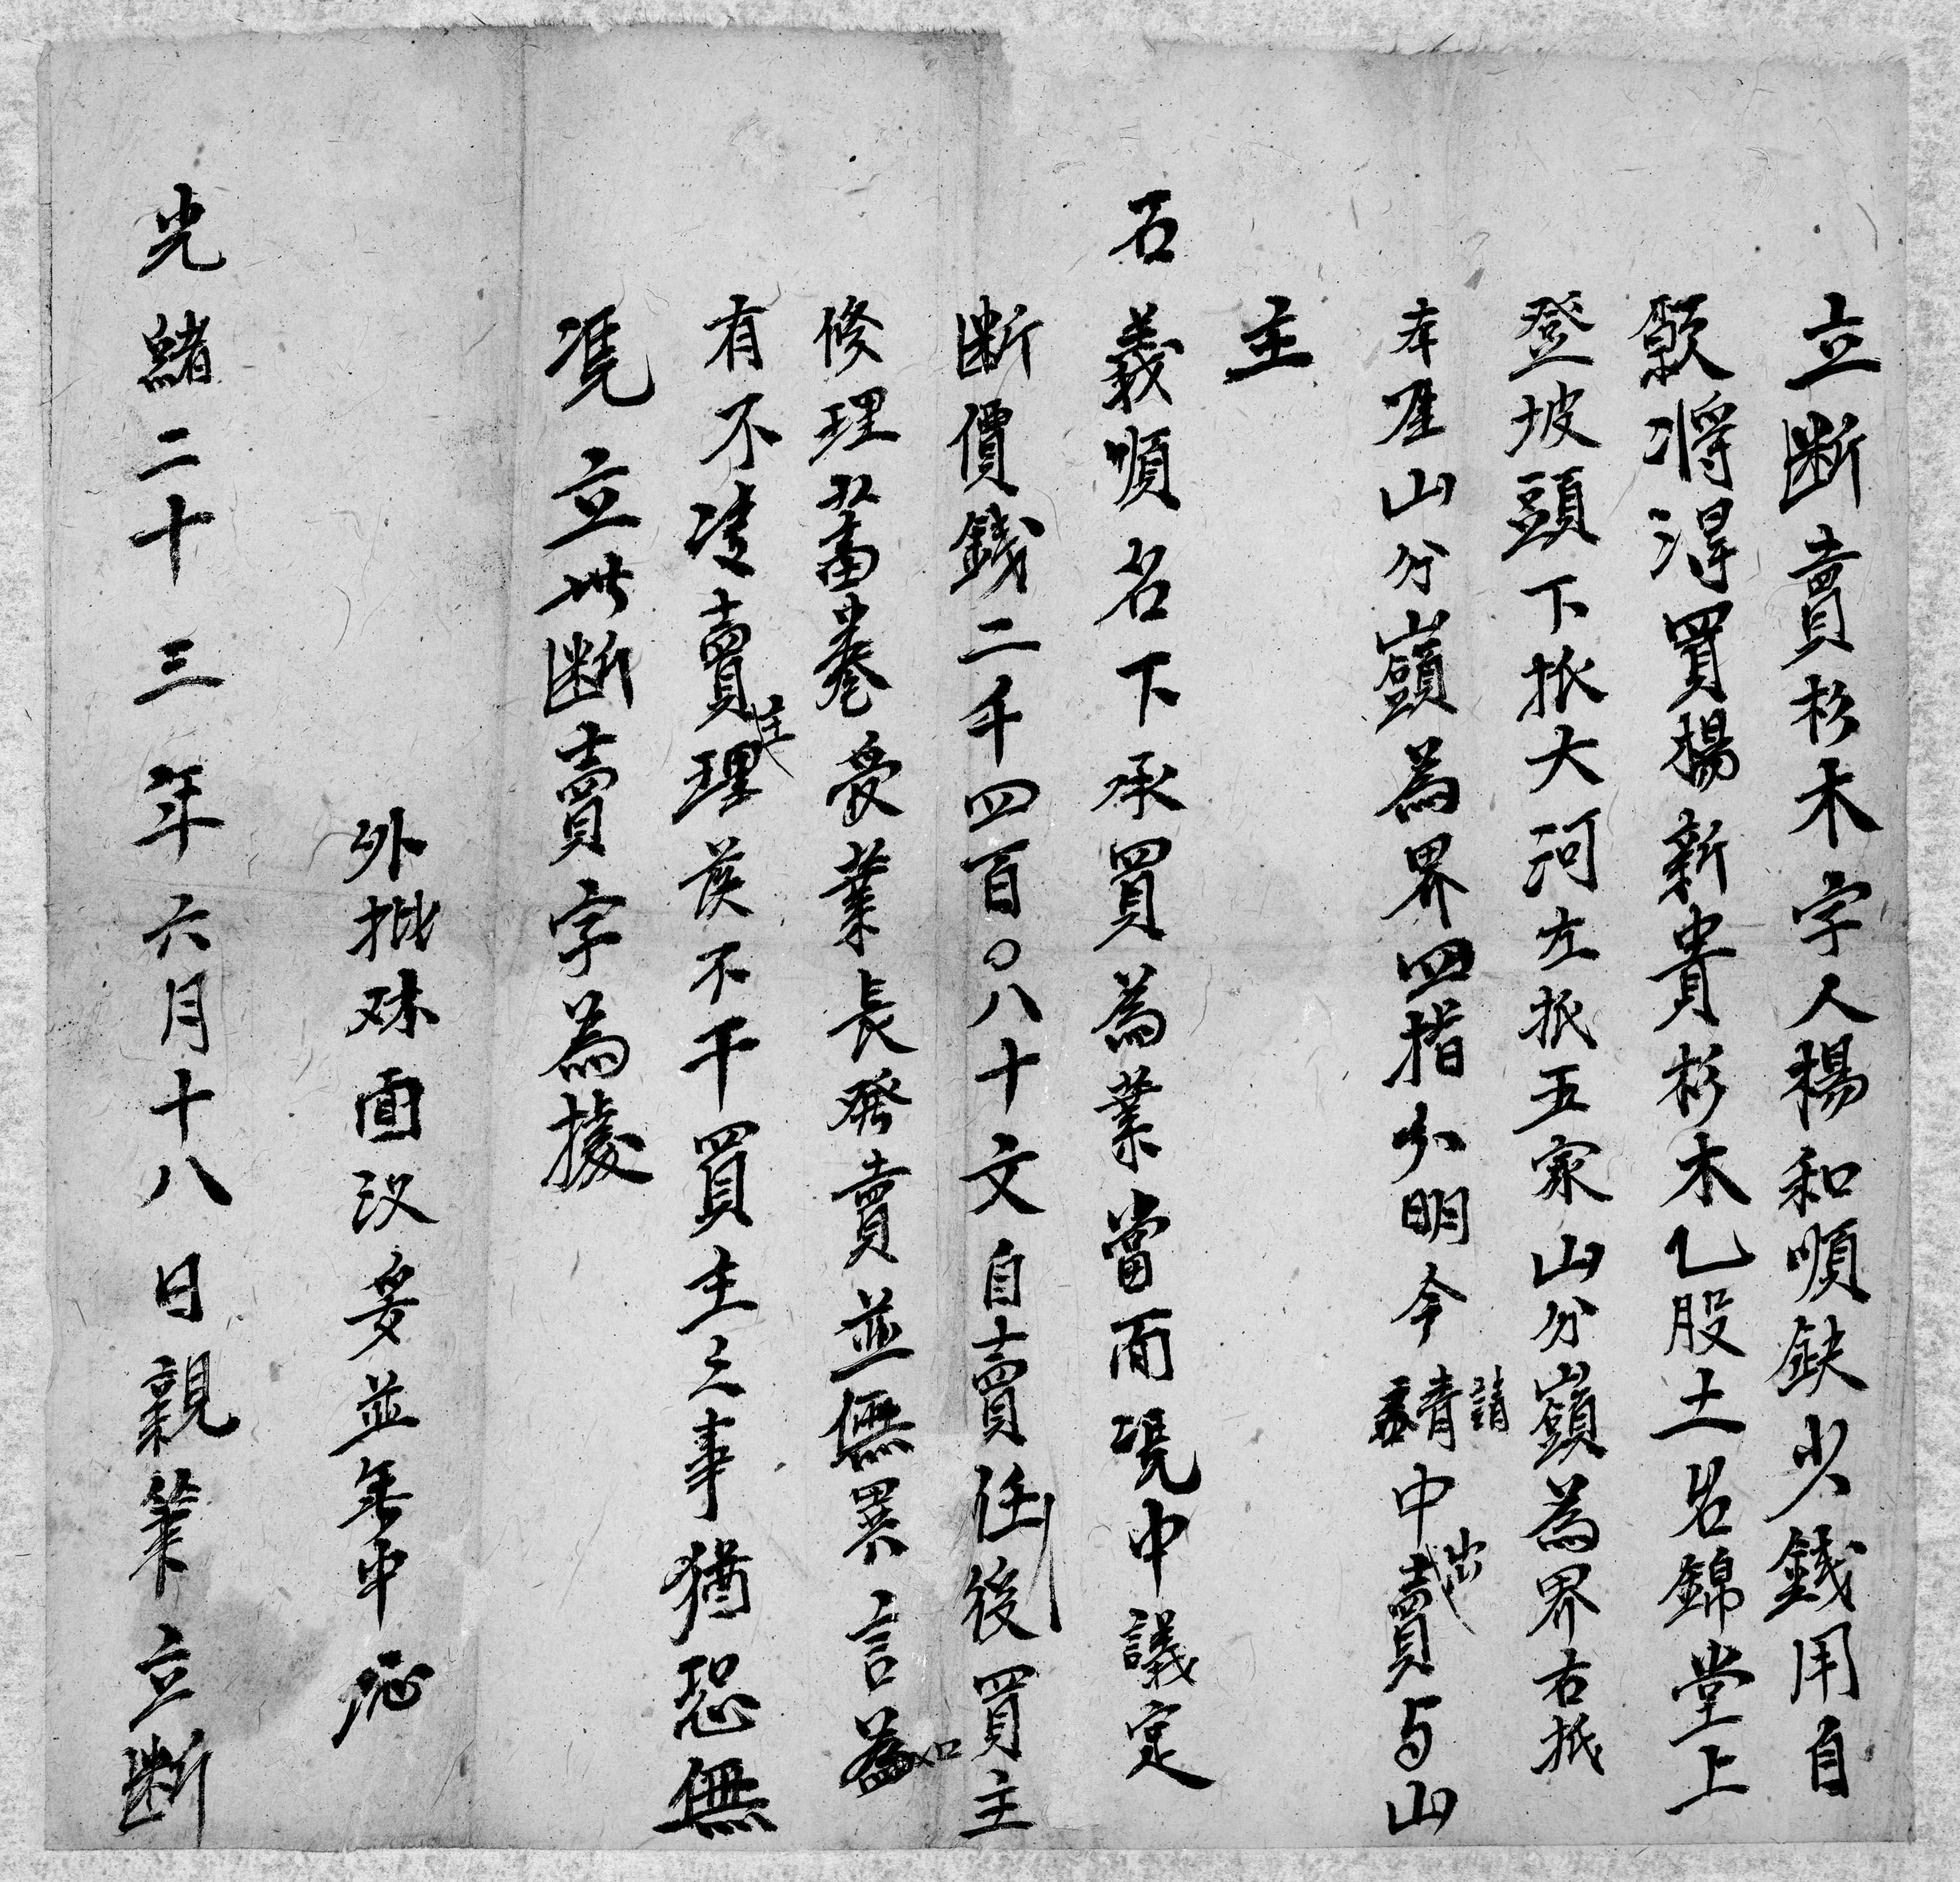 立断賣杉木字人楊和順缺少錢用自
願將得買楊新貴杉木乙股土名錦堂上
登坡頭下抵大河左抵五家山分嶺為界右抵
本屋山分嶺為界四指分明今請中出賣与山
主
石義順名下承買為業當面凴中議定
断價錢二千四百〇八十文自賣任後買主
修理蓄養受業長発賣並無異言如
有不清賣主理落不干買主之事猶恐無
凴立此断賣字為據
外批
面议 並無中
光緒二十三年六月十八日親筆立断